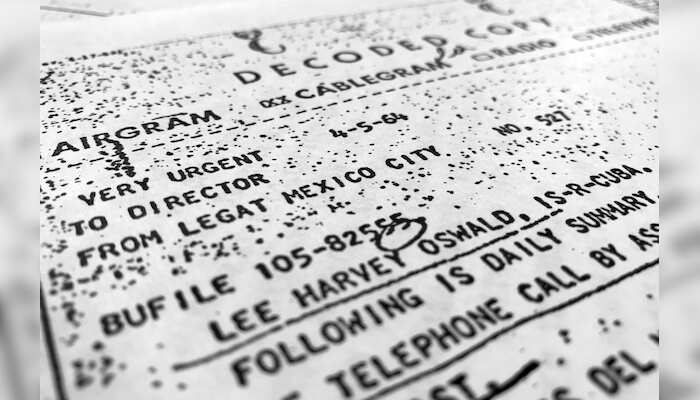 DECODED COPY
AIRGRAM CABLEGRAM RADIO
4-5-64
VERY URGENT NO. 527
TO DIRECTOR
FROM LEGAT MEXICO CITY
BUFILE 105-82555
LEE HARVEY OSWALD, IS-R-CUBA.
FOLLOWING IS DAILY SUMMARY.
TELEPHONE CALL BY
DEL